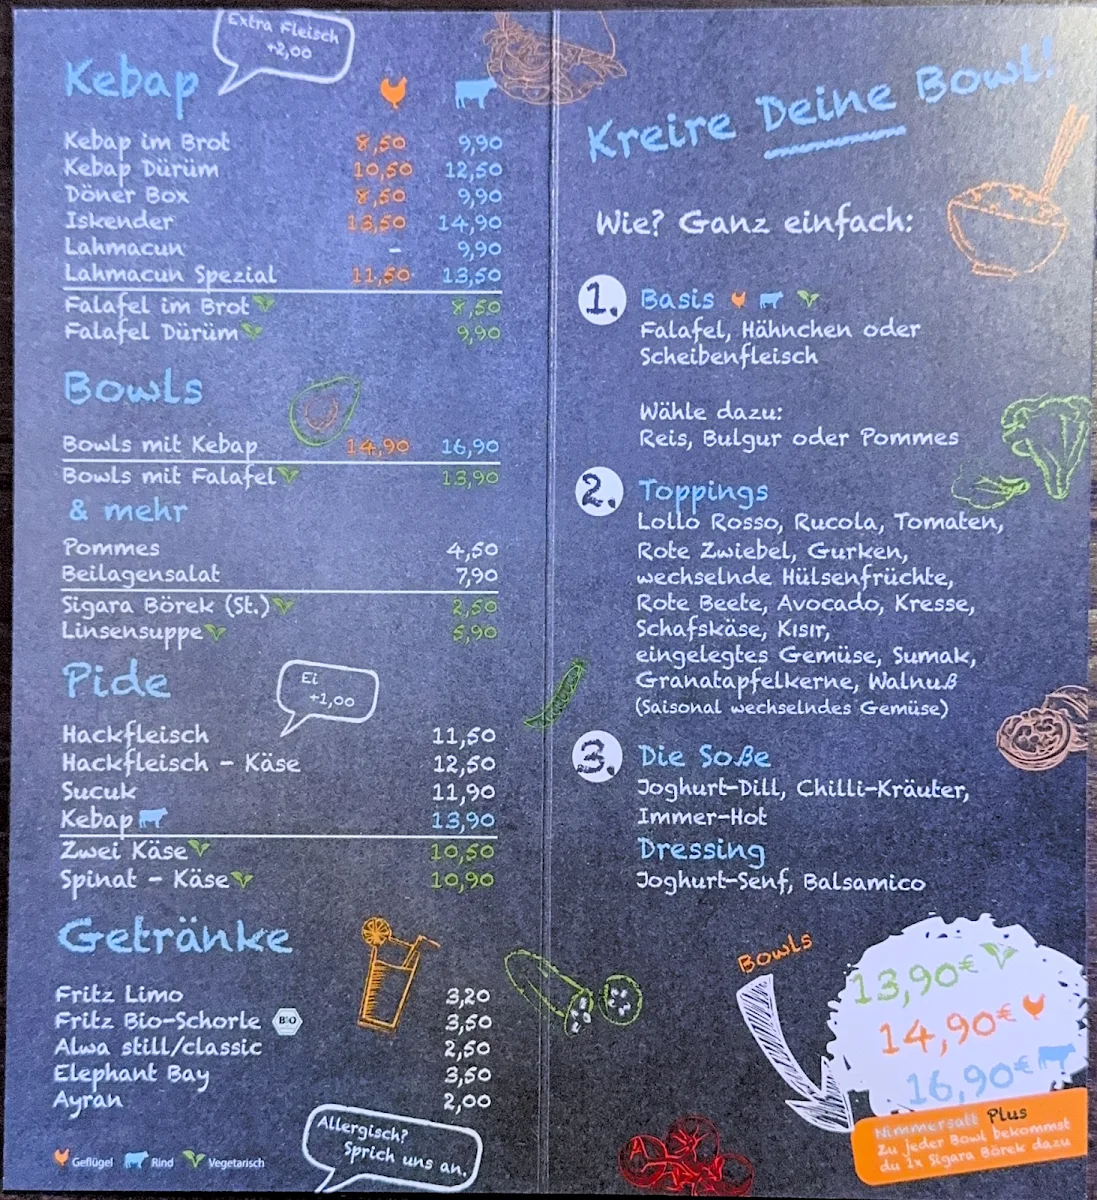 Extra Fleisch
+2,00
Kebap
Kebap im Brot 8,50 9,90
Kebap Dürüm 10,50 12,50
Döner Box 8,50 9,90
Iskender 13,50 14,90
Lahmacun - 9,90
Lahmacun Spezial 11,50 13,50
Falafel im Brot 8,50
Falafel Dürüm 9,90
Bowls
Bowls mit Kebap 14,90 16,90
Bowls mit Falafel 13,90
& mehr
Pommes 4,50
Beilagensalat 7,90
Sigara Börek (St.) 2,50
Linsensuppe 5,90
Pide
Ei
+1,00
Hackfleisch 11,50
Hackfleisch - Käse 12,50
Sucuk 11,90
Kebap 13,90
Zwei Käse 10,50
Spinat - Käse 10,90
Getränke
Fritz Limo 3,20
Fritz Bio-Schorle BIO 3,50
Alwa still/classic 2,50
Elephant Bay 3,50
Ayran 2,00
Geflügel Rind Vegetarisch
Allergisch?
Sprich uns an.
Kreire Deine Bowl!
Wie? Ganz einfach:
1. Basis
Falafel, Hähnchen oder
Scheibenfleisch
Wähle dazu:
Reis, Bulgur oder Pommes
2. Toppings
Lollo Rosso, Rucola, Tomaten,
Rote Zwiebel, Gurken,
wechselnde Hülsenfrüchte,
Rote Beete, Avocado, Kresse,
Schafskäse, Kısır,
eingelegtes Gemüse, Sumak,
Granatapfelkerne, Walnuß
(Saisonal wechselndes Gemüse)
3. Die Soße
Joghurt-Dill, Chilli-Kräuter,
Immer-Hot
Dressing
Joghurt-Senf, Balsamico
Bowls
13,90€
14,90€
16,90€
Nimmersatt Plus
Zu jeder Bowl bekommst
du 1x Sigara Börek dazu